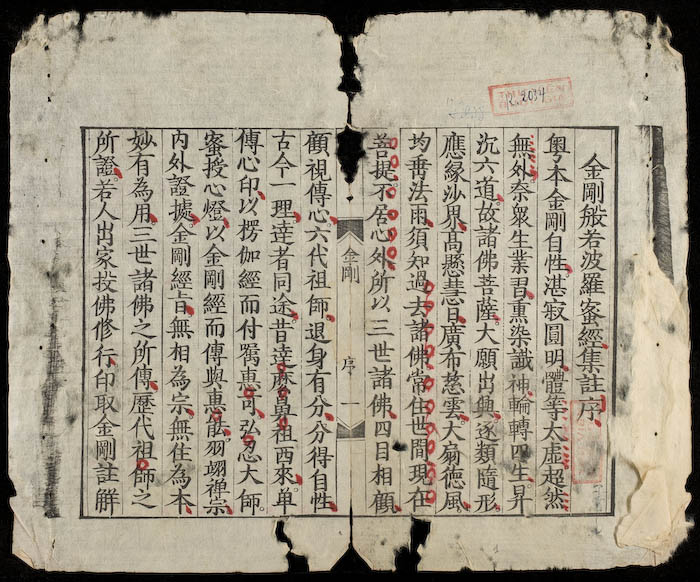 金剛般若波羅蜜經集註序
粵本金剛自性湛寂圓明體等太虛超然
無外奈衆生業習熏染識神輪轉四生昇
沉六道故諸佛菩薩大願出興逐類隨形
應緣沙界高懸慧日廣布慈雲大扇德風
均垂法雨須知過去諸佛常住世間現在
菩提不居心外所以三世諸佛四目相顧
金剛 序 一
顧視傳心六代祖師退身有分分得自性
古今一理達者同途昔達磨鼻祖西來单
傳心印以楞伽經而付囑惠可弘忍大師
蜜授心燈以金剛經而傳與惠能羽翊禪宗
內外證據金剛經旨無相為宗無住為本
妙有為用三世諸佛之所傳歷代祖師之
所證若人出家投佛修行印取金剛註解
2034